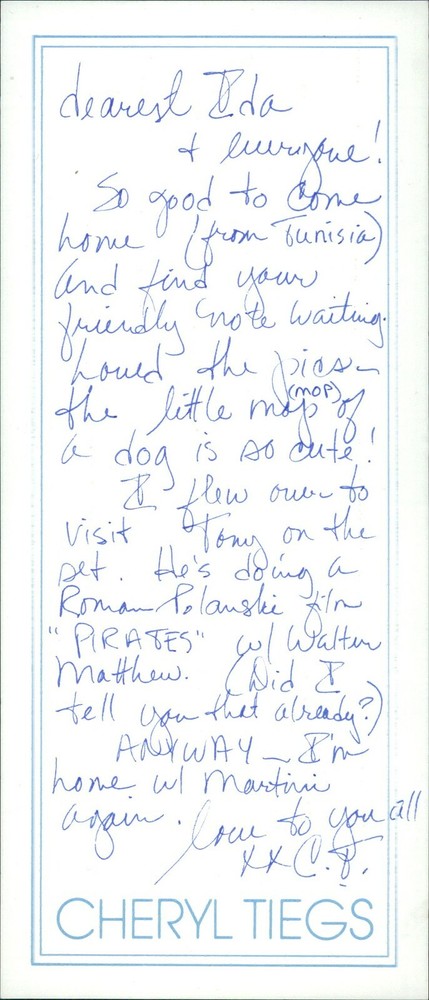 dearest Ida
& everyone!
So good to come
home (from Tunisia)
and find your
friendly note waiting.
Loved the pics –
the little mop (MOP) of
a dog is so cute!
I flew over to
visit Tony on the
set. He's doing a
Roman Polanski film
"PIRATES" w/ Walter
Matthew. (Did I
tell you that already?)
ANYWAY – I'm
home w/ Martini
again.
love to you all
xx C.T.
CHERYL TIEGS